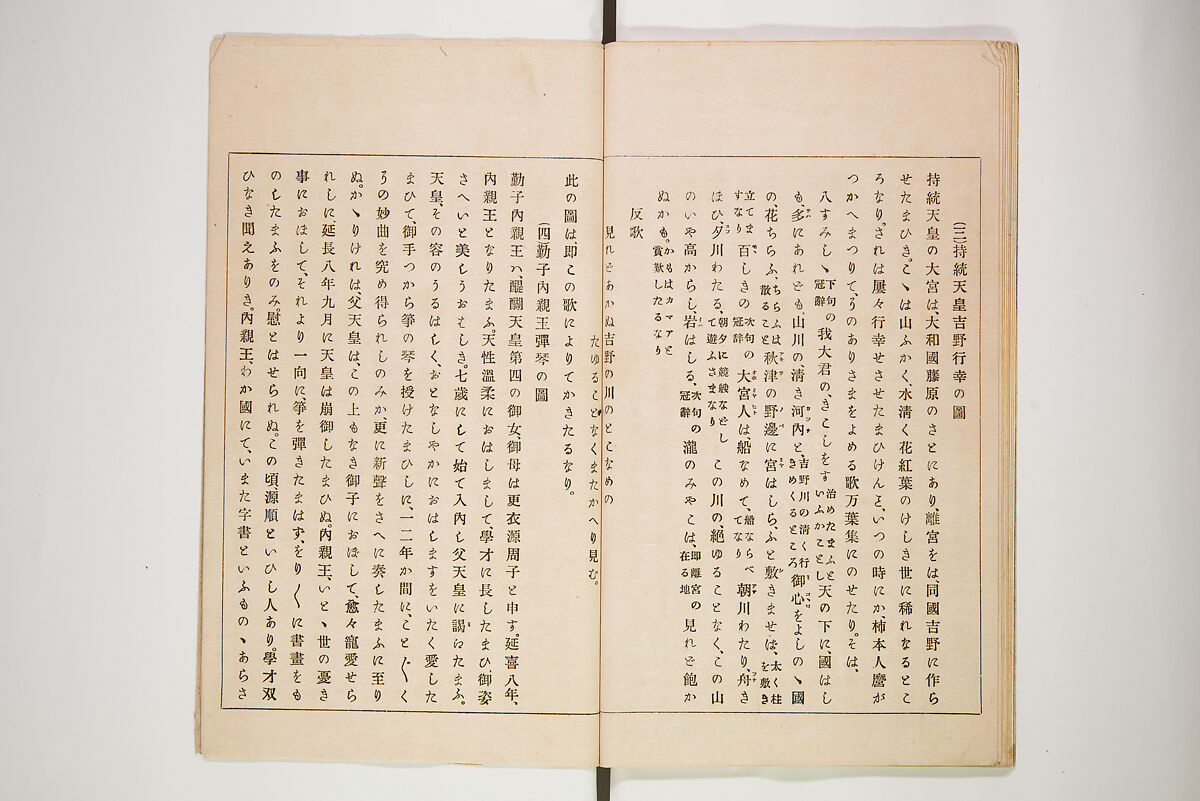 (三)持統天皇吉野行幸の圖
持統天皇の大宮は、大和國藤原のさとにあり、離宮をは、同國吉野に作ら
せたまひき。こゝは山ふかく、水淸く花紅葉のけしき世に稀れなるとこ
ろなり。されは屢々行幸せさせたまひけんと、いつの時にか、柿本人麿が
つかへまつりて、そのありさまをよめる歌万葉集にのせたり。そは、
八すみしゝ下句の冠辭我大君の、きこしをす治めたまふといふかことし天の下に、國はし
も、多にあれども、山川の、淸き河內と、吉野川の淸く行きめくるところ御心をよしのゝ國
の、花ちらふ、ちらふは散ること秋津の野邊に宮はしら、ふと敷きませは、太く柱を敷き
立てますなり百しきの次句の冠辭大宮人は、船なめて、船ならべてなり朝川わたり、舟き
ほひ、夕川わたる、朝夕に競船などして遊ふさまなりこの川の、絕ゆることなく、この山
のいや高からし、岩はしる、次句の冠辭瀧のみやこは、卽離宮の在る地見れど飽か
ぬかも。かもはカマアと賞歎したるなり
反歌
見れどあかぬ吉野の川のとこなめの
たゆることなくまたかへり見む。
此の圖は、卽この歌によりてかきたるなり。
(四)勤子內親王彈琴の圖
勤子內親王ハ、醍醐天皇第四の御女、御母は更衣源周子と申す。延喜八年、
內親王となりたまふ。天性溫柔におはしまして、學才に長したまひ、御姿
さへいと美しうおはしき。七歲にして始て入內し父天皇に謁らたまふ。
天皇、その容のうるはしく、おとなしやかにおはしますをいたく愛した
まひて、御手つから箏の琴を授けたまひしに、一二年か間に、こと〴〵く
その妙曲を究め得られしのみか、更に新聲をさへに奏したまふに至り
ぬ。かゝりけれは、父天皇は、この上もなき御子におほして、愈々寵愛せら
れしに、延長八年九月に天皇は崩御したまひぬ。內親王、いとゝ世の憂き
事におほして、それより一向に、箏を彈きたまはす、をり〳〵に書畫をも
のしたまふをのみ、慰とはせられぬ。この頃、源順といひし人あり。學才双
ひなき聞えありき。內親王、わか國にて、いまた字書といふものゝあらさ